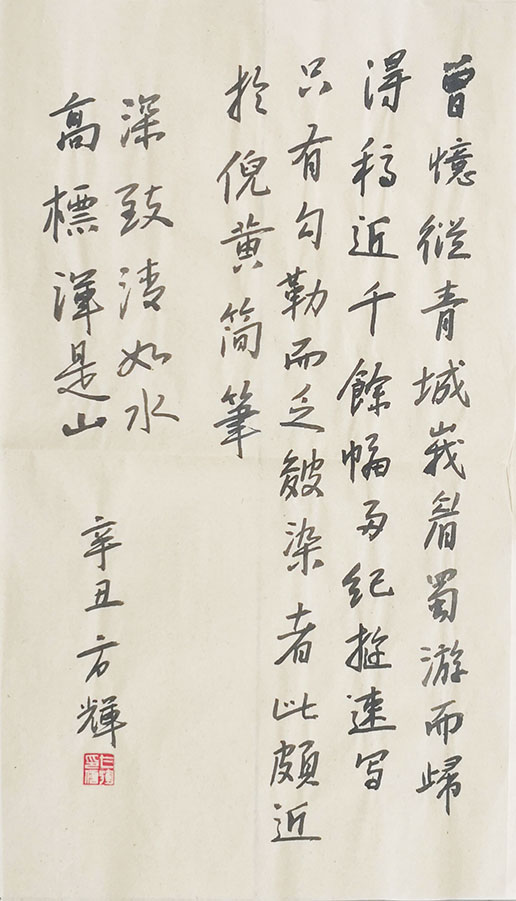 曾憶從青城峩眉蜀游而歸
得稿近千餘幅多紀速写
只有勾勒而乏皴染者此頗近
於倪黄简筆
深致清如水
高標渾是山
辛丑方輝